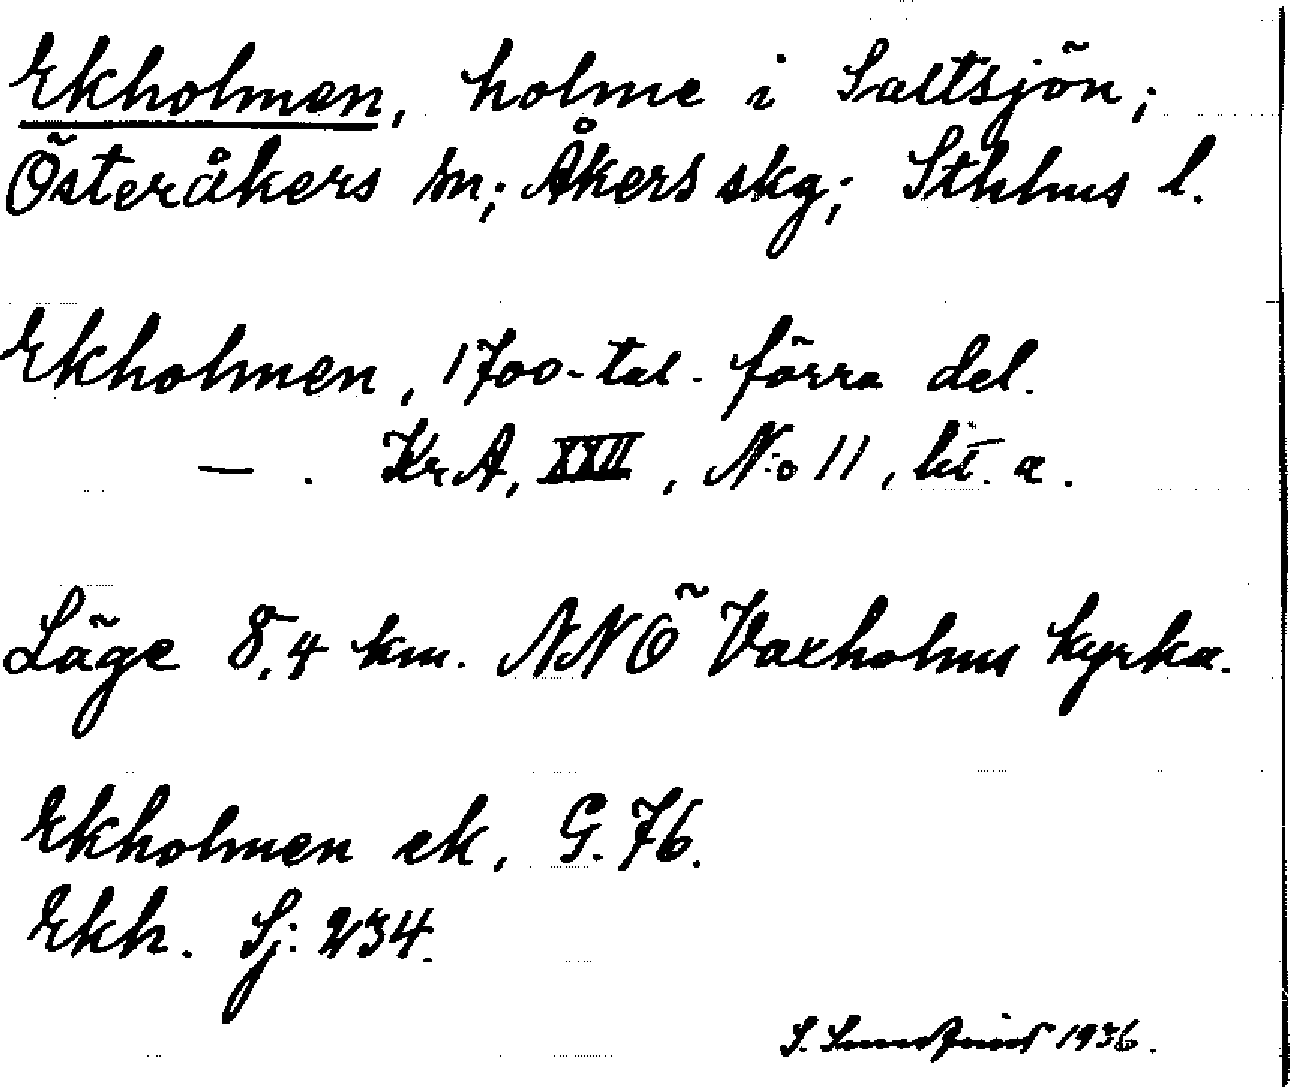 Ekholmen, holme i Saltsjön;
Österåkers sn; Åkers skg; Sthlms l.
Ekholmen, 1700-tal. förra del.
— . KrA, XXII, N:o 11, lit. a.
Läge 8,4 km. NNÖ Vaxholms kyrka.
Ekholmen ek, G. 76.
Ekh. Sj: 234.
S. 1936.